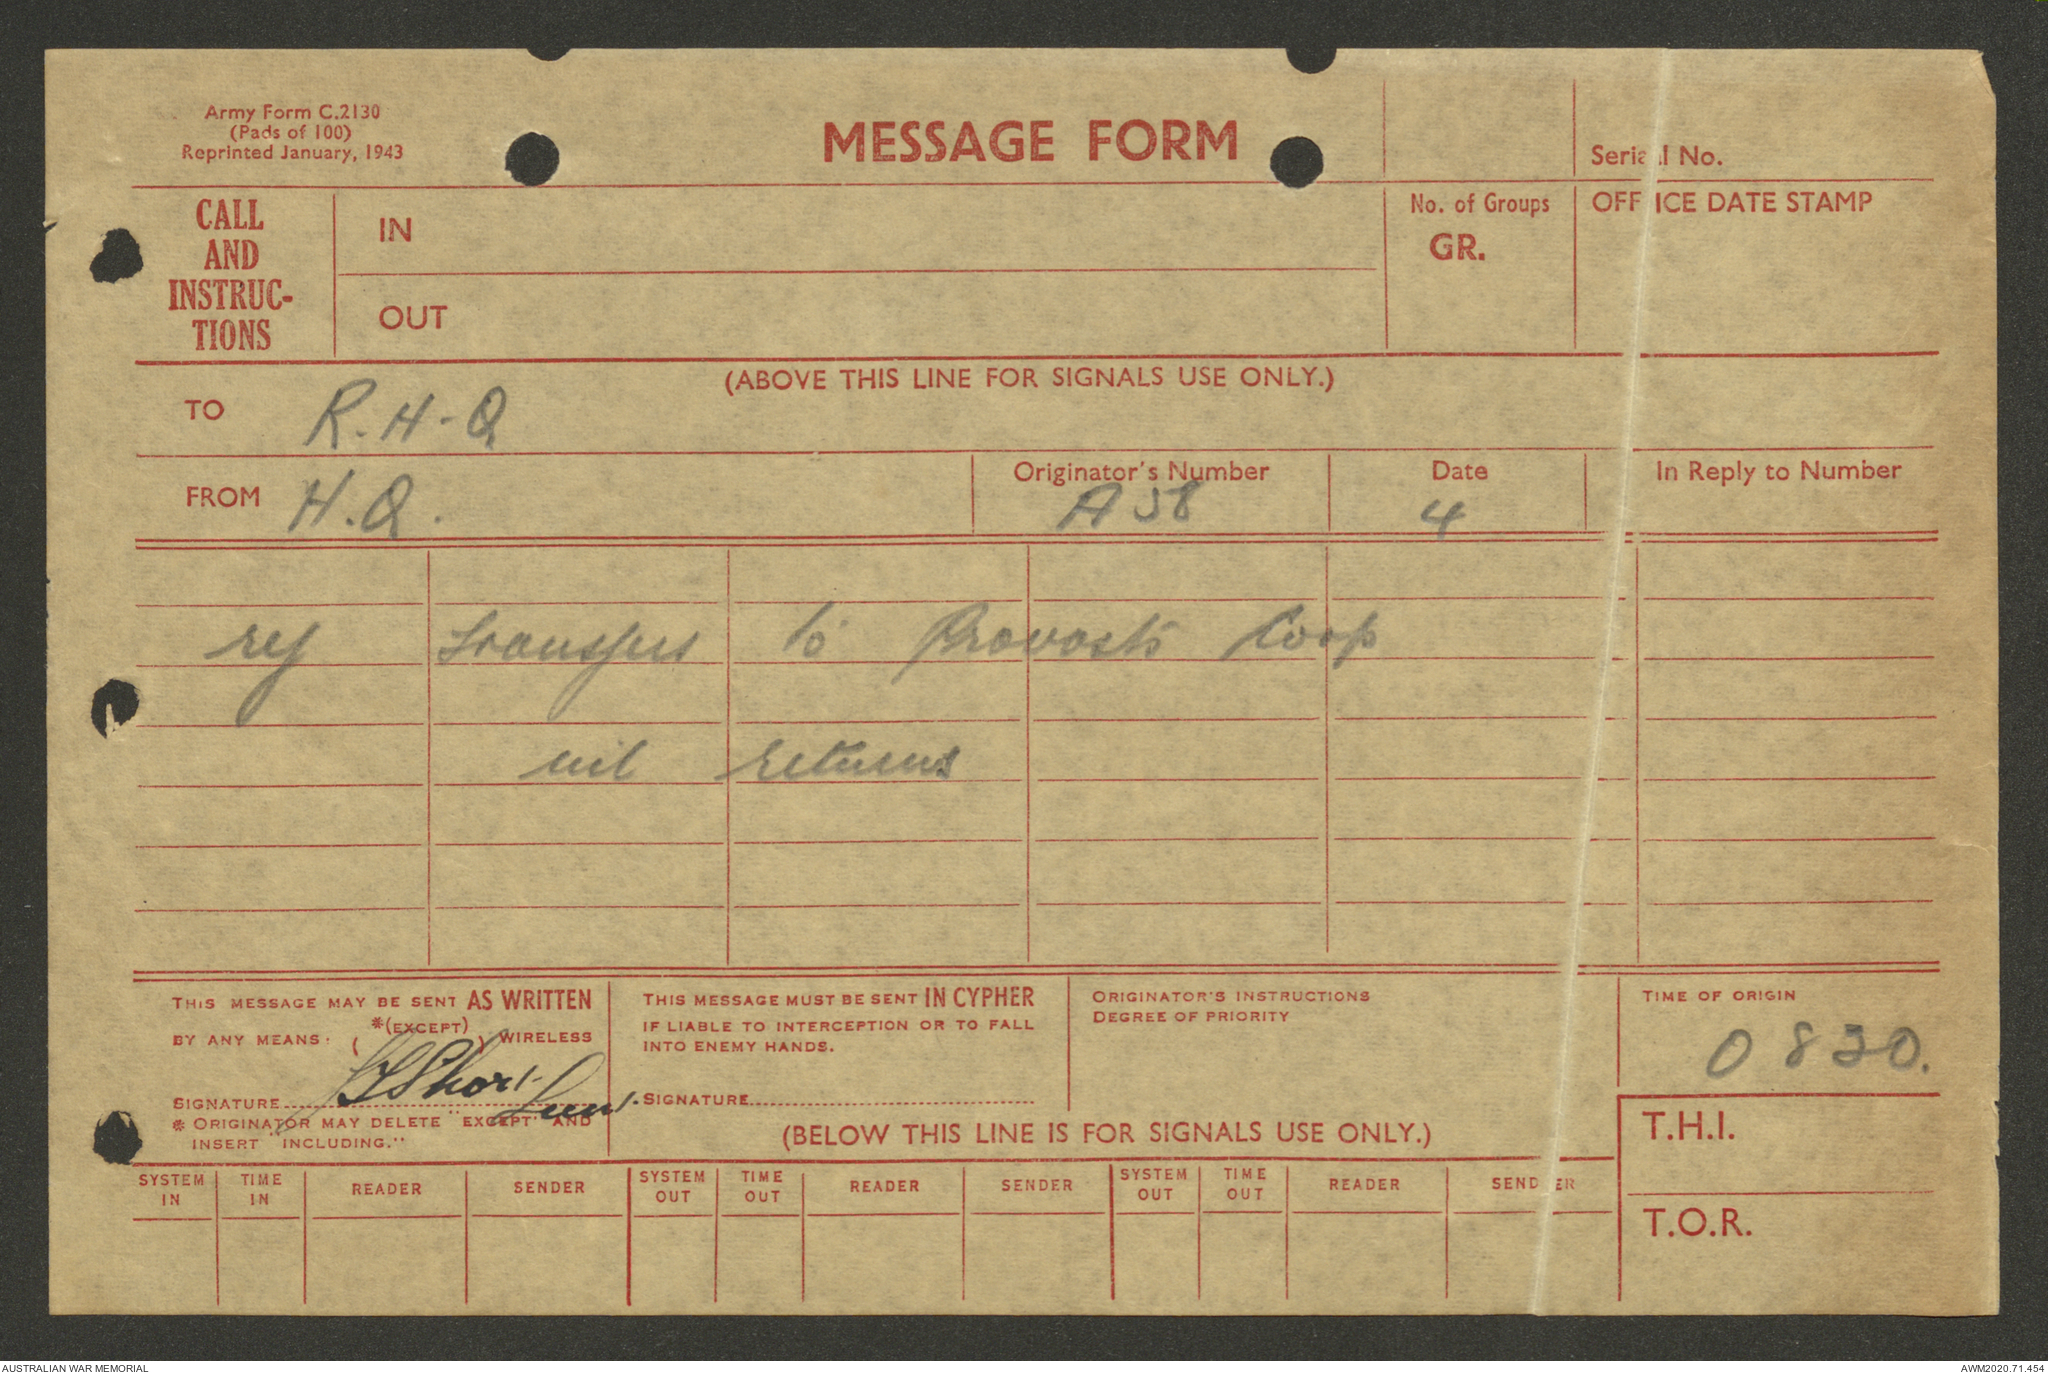 Army Form C.2130
(Pads of 100)
Reprinted January, 1943
MESSAGE FORM
Serial No.
CALL AND INSTRUC-TIONS
IN
OUT
No. of Groups
GR.
OFFICE DATE STAMP
(ABOVE THIS LINE FOR SIGNALS USE ONLY.)
TO R.H-Q
FROM H.Q.
Originator's Number
A58
Date
4
In Reply to Number
ref transfers to Provosts Corp
nil returns
THIS MESSAGE MAY BE SENT AS WRITTEN
BY ANY MEANS. *(EXCEPT) ( ) WIRELESS
SIGNATURE Short Lieut.
* ORIGINATOR MAY DELETE "EXCEPT" AND
INSERT "INCLUDING."
THIS MESSAGE MUST BE SENT IN CYPHER
IF LIABLE TO INTERCEPTION OR TO FALL
INTO ENEMY HANDS.
SIGNATURE
ORIGINATOR'S INSTRUCTIONS
DEGREE OF PRIORITY
TIME OF ORIGIN
0830.
(BELOW THIS LINE IS FOR SIGNALS USE ONLY.)
T.H.I.
T.O.R.
SYSTEM IN TIME IN READER SENDER SYSTEM OUT TIME OUT READER SENDER SYSTEM OUT TIME OUT READER SENDER
AUSTRALIAN WAR MEMORIAL
AWM2020.71.454